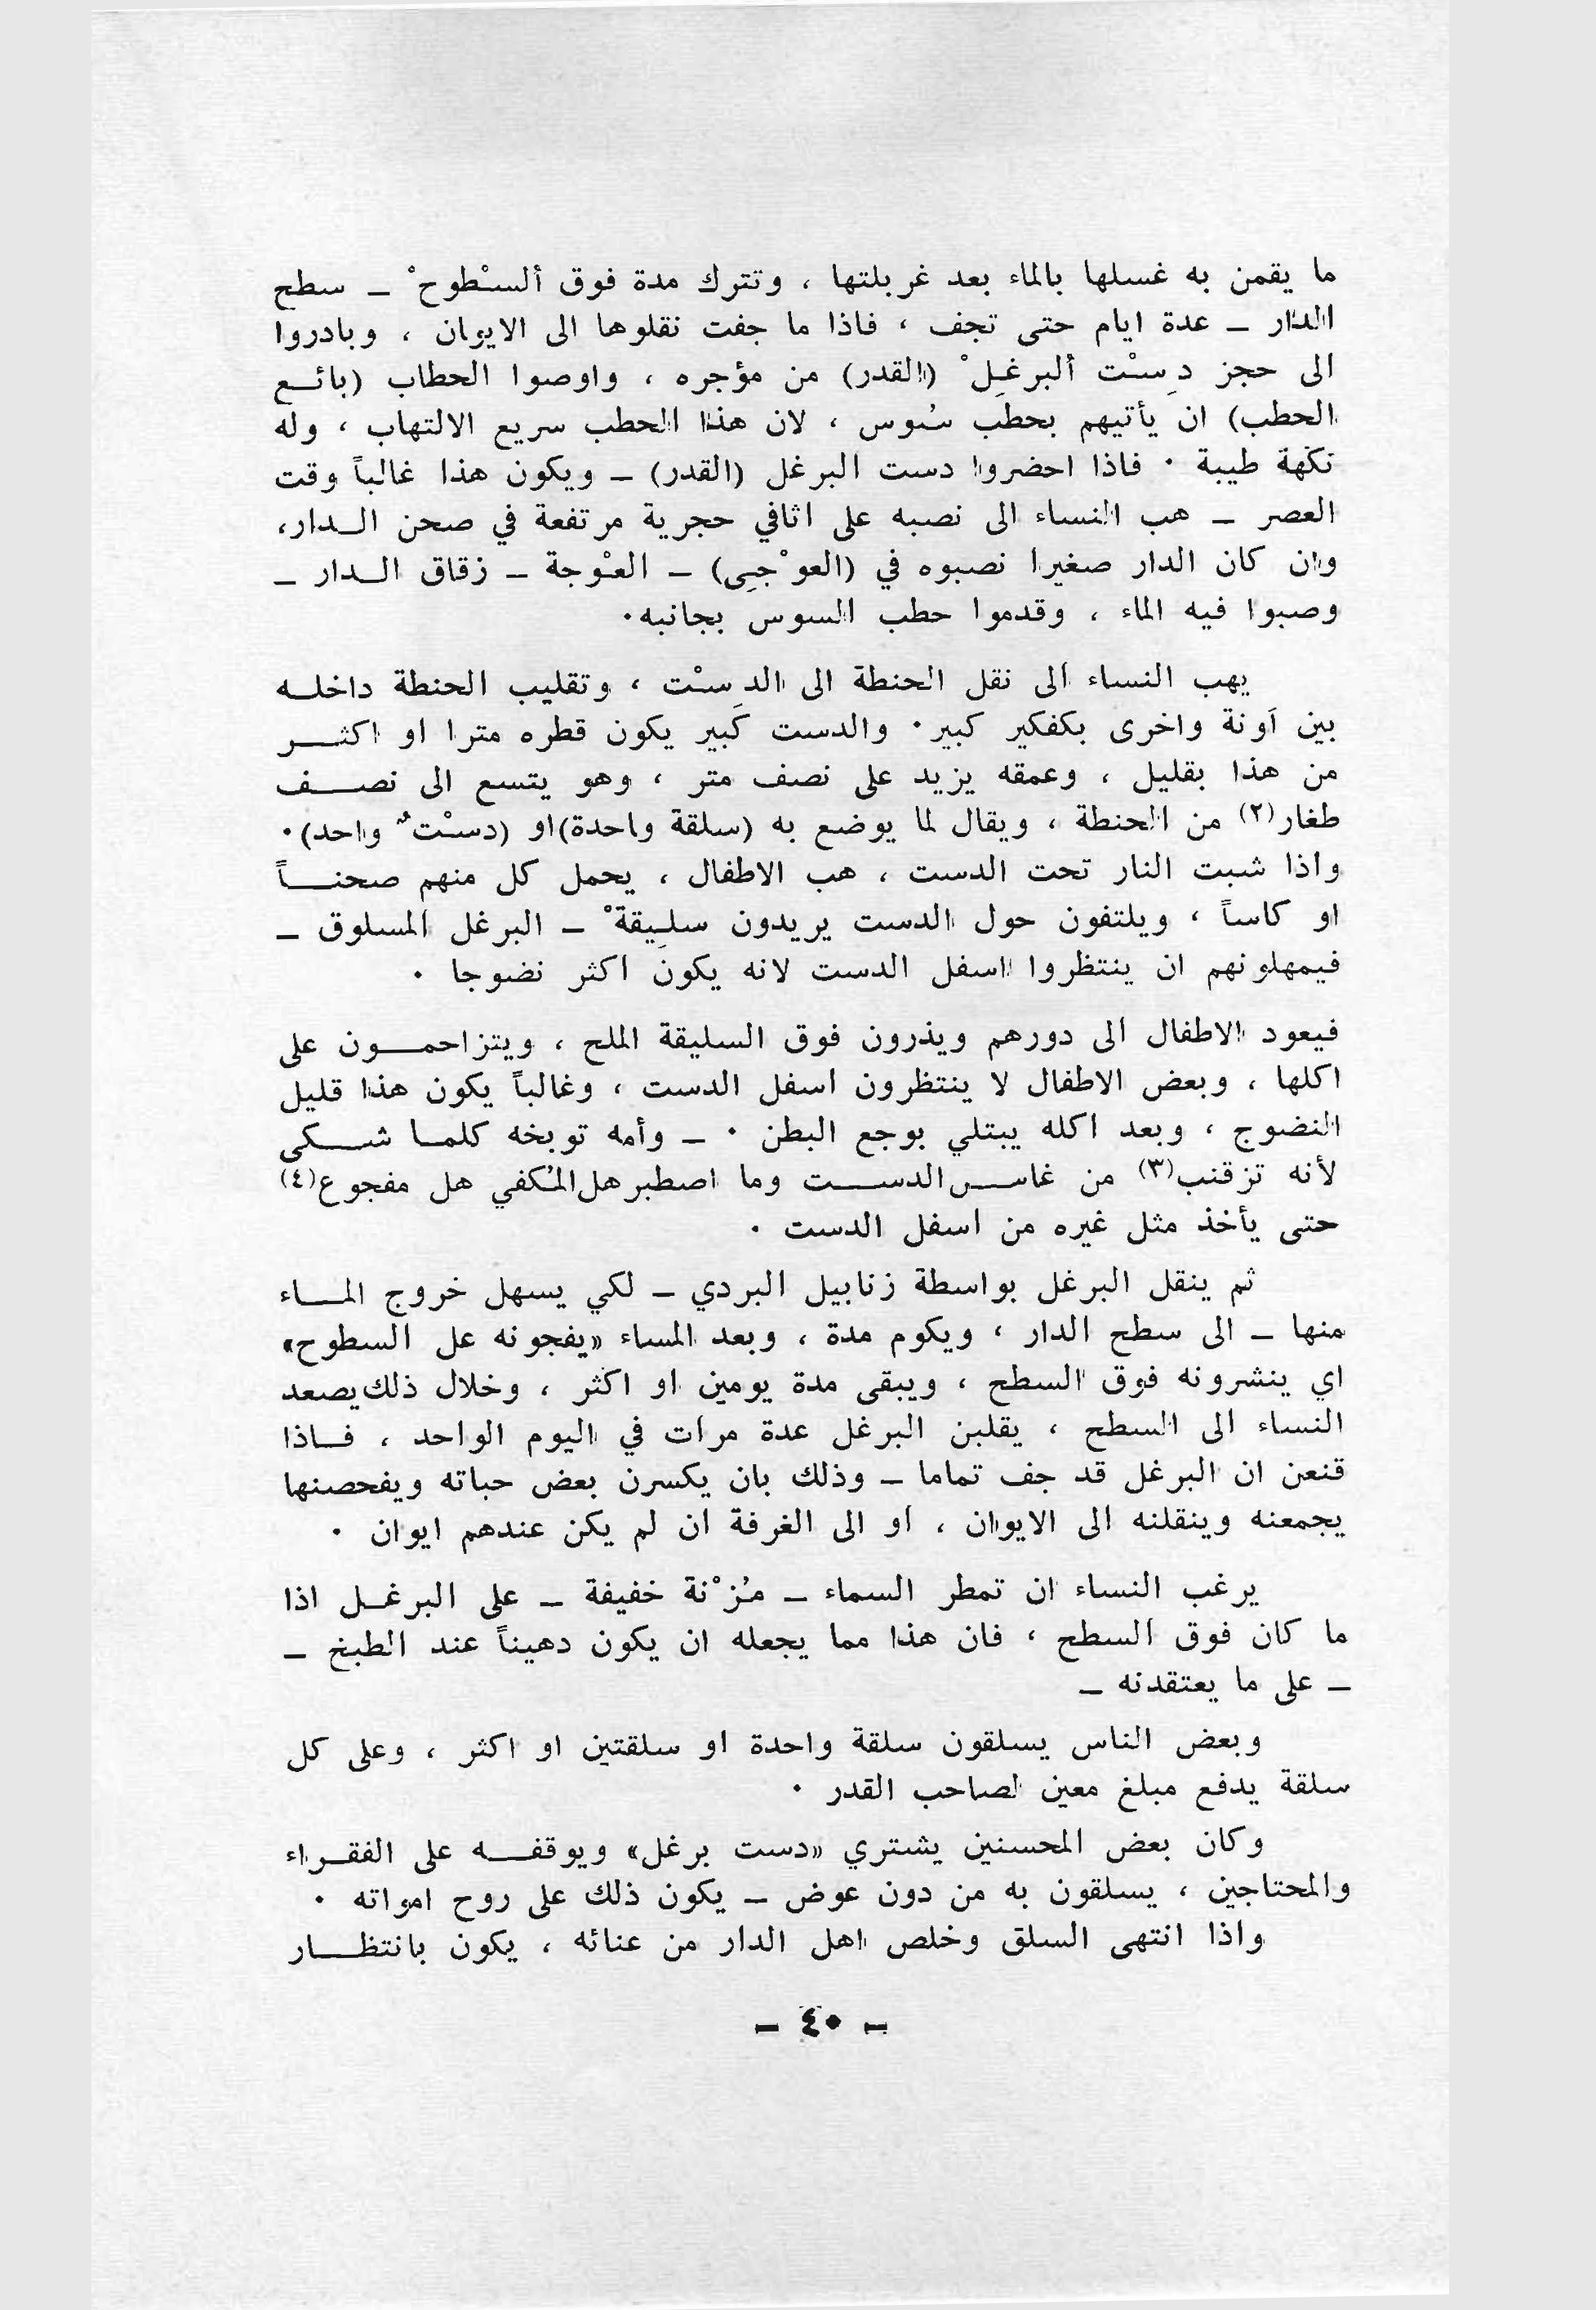 ما يقمن به غسلها بالماء بعد غربلتها ، وتترك مدة فوق ألسْطوحْ ــ سطح
الدار ــ عدة ايام حتى تجف ، فاذا ما جفت نقلوها الى الايوان ، وبادروا
الى حجز دِسْت ألبرغِلْ (القدر) من مؤجره ، واوصوا الحطاب (بائـع
الحطب) ان يأتيهم بحطَب سُوس ، لان هذا الحطب سريع الالتهاب ، وله
نكهة طيبة ٠ فاذا احضروا دست البرغل (القدر) ــ ويكون هذا غالباً وقت
العصر ــ هب النساء الى نصبه على اثافي حجرية مرتفعة في صحن الـدار،
وان كان الدار صغيرا نصبوه في (العوْجِى) ــ العْوجة ــ زقاق الـدار ــ
وصبوا فيه الماء ، وقدموا حطب السوس بجانبه٠
يهب النساء الى نقل الحنطة الى الدِسْت ، وتقليب الحنطة داخلـه
بين آونة واخرى بكفكير كبير٠ والدست كبير يكون قطره مترا او اكثـر
من هذا بقليل ، وعمقه يزيد على نصف متر ، وهو يتسع الى نصـف
طغار(٢) من الحنطة ، ويقال لما يوضع به (سلقة واحدة)او (دسْت واحد)٠
واذا شبت النار تحت الدست ، هب الاطفال ، يحمل كل منهم صحنـاً
او كاساً ، ويلتفون حول الدست يريدون سلِيقةْ ــ البرغل المسلوق ــ
فيمهلونهم ان ينتظروا اسفل الدست لانه يكون اكثر نضوجا ٠
فيعود الاطفال الى دورهم ويذرون فوق السليقة الملح ، ويتزاحمـون على
اكلها ، وبعض الاطفال لا ينتظرون اسفل الدست ، وغالباً يكون هذا قليل
النضوج ، وبعد اكله يبتلي بوجع البطن ٠ ــ وأمه توبخه كلمـا شـكى
لأنه تزقنب(٣) من غاسـس الدسـت وما اصطبر هل المُكفي هل مفجوع(٤)
حتى يأخذ مثل غيره من اسفل الدست ٠
ثم ينقل البرغل بواسطة زنابيل البردي ــ لكي يسهل خروج المـاء
منها ــ الى سطح الدار ، ويكوم مدة ، وبعد المساء «يفجونه عل السطوح»
اي ينشرونه فوق السطح ، ويبقى مدة يومين او اكثر ، وخلال ذلك يصعد
النساء الى السطح ، يقلبن البرغل عدة مرات في اليوم الواحد ، فـاذا
قنعن ان البرغل قد جف تماما ــ وذلك بان يكسرن بعض حباته ويفحصنها
يجمعنه وينقلنه الى الايوان ، او الى الغرفة ان لم يكن عندهم ايوان ٠
يرغب النساء ان تمطر السماء ــ مُزْنة خفيفة ــ على البرغـل اذا
ما كان فوق السطح ، فان هذا مما يجعله ان يكون دهيناً عند الطبخ ــ
ــ على ما يعتقدنه ــ
وبعض الناس يسلقون سلقة واحدة او سلقتين او اكثر ، وعلى كل
سلقة يدفع مبلغ معين لصاحب القدر ٠
وكان بعض المحسنين يشتري «دست برغل» ويوقفـه على الفقـراء
والمحتاجين ، يسلقون به من دون عوض ــ يكون ذلك على روح امواته ٠
واذا انتهى السلق وخلص اهل الدار من عنائه ، يكون بانتظـار
ــ ٤٠ ــ